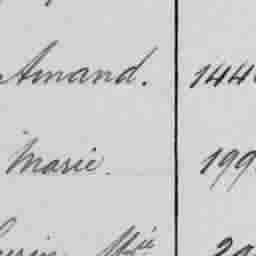 Amand. 144
Marie. 199
Mie 29